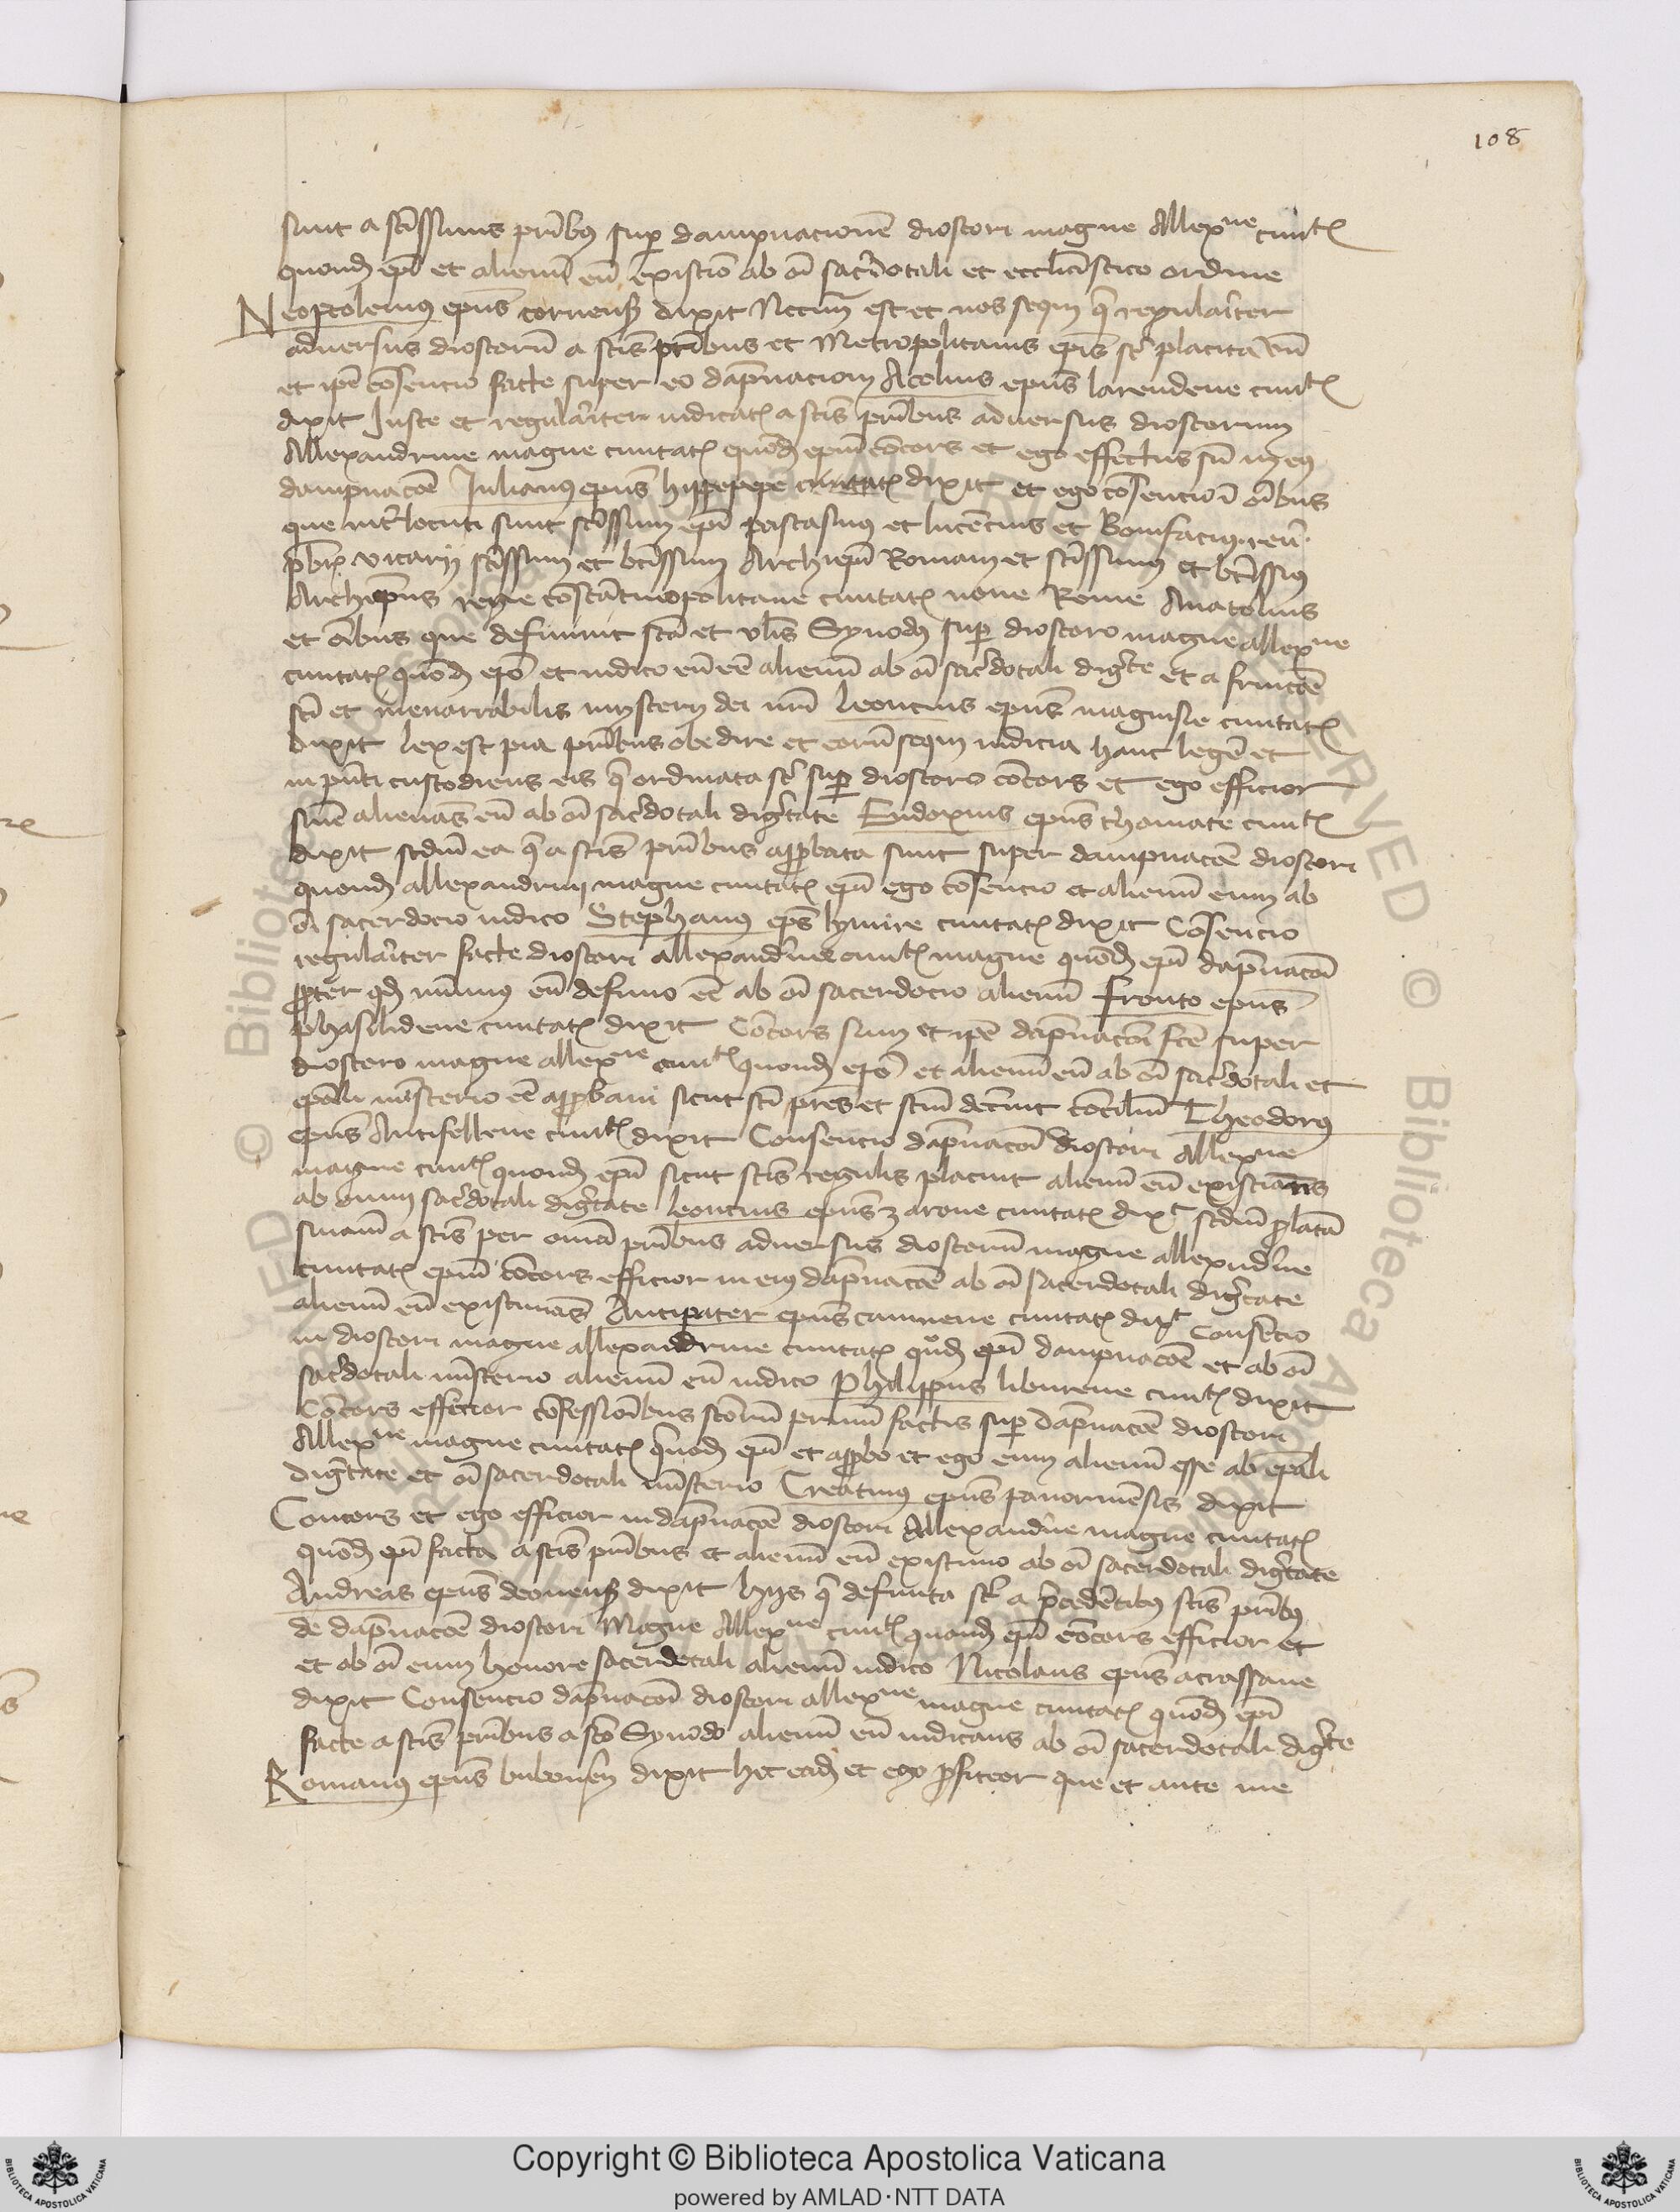 108
sunt a scissimis pribus sup dampnacionem dioscori magne Allexne ciuitatis
quondam epi et alienum eum existimo ab omi sacerdotali et ecclesiastico ordine
Neoptolemus epus cornensis dixit Necesarium est et nos sequi que regulariter
aduersus dioscorum a scis patribus et Metropolitanis epis sunt placita
et ipe consencio facte super eo dapnacioni Acolius epus larendene ciuitatis
dixit Iuste et regulariter iudicatis a scis pribus aduersus dioscorum
Allexandrine magne ciuitatis quondam epum concors et ego effectus sum in eius
dampnacoe Iulianus epus hippepepe ciuitatis dixit et ego consencio i oibus
que interlocuti sunt scissimi epi pascasinus et lucencius et Bonifacius
pbri vicarij scissimi et btissimi Archiepi Romani et scissimus et btissimus
Archiepus regie constantinopolitane ciuitatis noue Rome Anatolius
et oibus que definiuit sca et vlis Synodus sup dioscoro magne allexne
ciuitatis quondam epo et iudico eum ee alienum ab omi sacerdotali dignitate et a fruicoe
sci et inenarrabilis mysterij dei nri Leoncius epus magnisie ciuitatis
dixit lex est pia pribus obedire et eorum sequi iudicia hanc legem et
in pnti custodiens eis que ordinata sunt sup dioscoro concors et ego efficior
alienans eum ab omi sacerdotali dignitate Eudoxius epus thomate ciuitatis
dixit scdm ea que a scis pribus approbata sunt super dampnacoe dioscori
quondam allexandrinij magne ciuitatis epi ego consencio et alienum eum ab
omi sacerdocio iudico Stephanus eps lymire ciuitatis dixit Consencio
regulariter facte dioscori allexandrine ciuitatis magne quondam epi dapnacoi
propter quod eum definio ee ab omi sacerdocio alienum Fronto epus
phasilidene ciuitatis dixit Concors sum et ipe dapnacoi fce super
dioscoro magne allexne ciuitatis quondam epo et alienum eum ab omi sacerdotali et
epali misterio ee approbaui sicut sci pres et scm decreuit concilium Theodorus
epus Antifellene ciuitatis dixit Consencio dapnacoi dioscori Allexne
magne ciuitatis quondam epi sicut scis regulis placuit alienum eum existimans
ab omni sacerdotali dignitate Leoncius epus zarone ciuitatis dixit scdm prolatam
sniam a scis per omia pribus aduersus dioscorum magne allexndrine
ciuitatis epum concors efficior in eius dapnacoe ab omi sacerdotali dignitate
alienum eum existimans Antipater epus caunene ciuitatis dixit Consencio
in dioscori magne allexandrine ciuitatis quondam epi dampnacoe et ab omi
sacerdotali misterio alienum eum iudico Philippus liburene ciuitatis dixit
Concors efficior confessionibus scorum primum factis sup dapnacoe dioscori
Allexne magne ciuitatis quondam epi et approbo et ego eum alienum esse ab epali
dignitate et omi sacerdotali misterio Creatinus epus panormensis dixit
Concors et ego efficior in dapnacoe dioscori Allexandrine magne ciuitatis
quondam epi facta a scis pribus et alienum eum existimo ab omi sacerdotali dignitate
Andreas epus deonensis dixit hijs que definita sunt a precedentibus scis pribus
de dapnacoe dioscori Magne Allexne ciuitatis quondam epi concors efficior et
et ab omi eum honore sacerdotali alienum iudico Nicolaus epus acrassane
dixit Consencio dapnacoi dioscori allexne magne ciuitatis quondam epi
facte a scis pribus a sco Synodo alienum eum iudicans ab omi sacerdotali dignitate
Romanus epus bubonensis dixit hec eadem et ego profiteor que et ante me
Copyright © Biblioteca Apostolica Vaticana
powered by AMLAD·NTT DATA